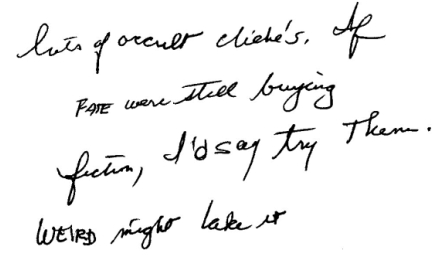 lots of occult cliché's. If
FATE were still buying
fiction, I'd say try them.
WEIRD might take it